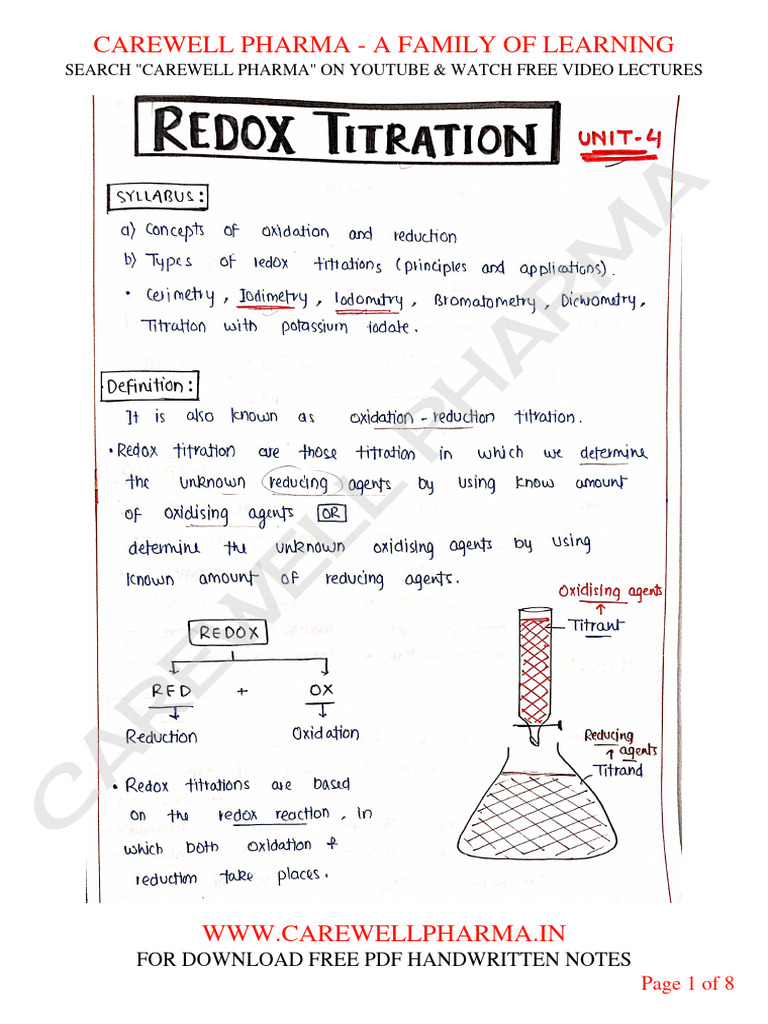 CAREWELL PHARMA - A FAMILY OF LEARNING
SEARCH "CAREWELL PHARMA" ON YOUTUBE & WATCH FREE VIDEO LECTURES
REDOX TITRATION
UNIT-4
SYLLABUS:
a) Concepts of oxidation and reduction
b) Types of redox titrations (principles and applications).
• Cerimetry, Iodimetry, Iodometry, Bromatometry, Dichrometry,
Titration with potassium iodate.
Definition:
It is also known as oxidation-reduction titration.
• Redox titration are those titration in which we determine
the unknown reducing agents by using know amount
of oxidising agents OR
determine the unknown oxidising agents by using
known amount of reducing agents.
Oxidising agents
Titrant
REDOX
RED + OX
Reduction Oxidation
Reducing agents
Titrand
• Redox titrations are based
on the redox reaction, in
which both oxidation &
reduction take places.
CAREWELL PHARMA
WWW.CAREWELLPHARMA.IN
FOR DOWNLOAD FREE PDF HANDWRITTEN NOTES
Page 1 of 8